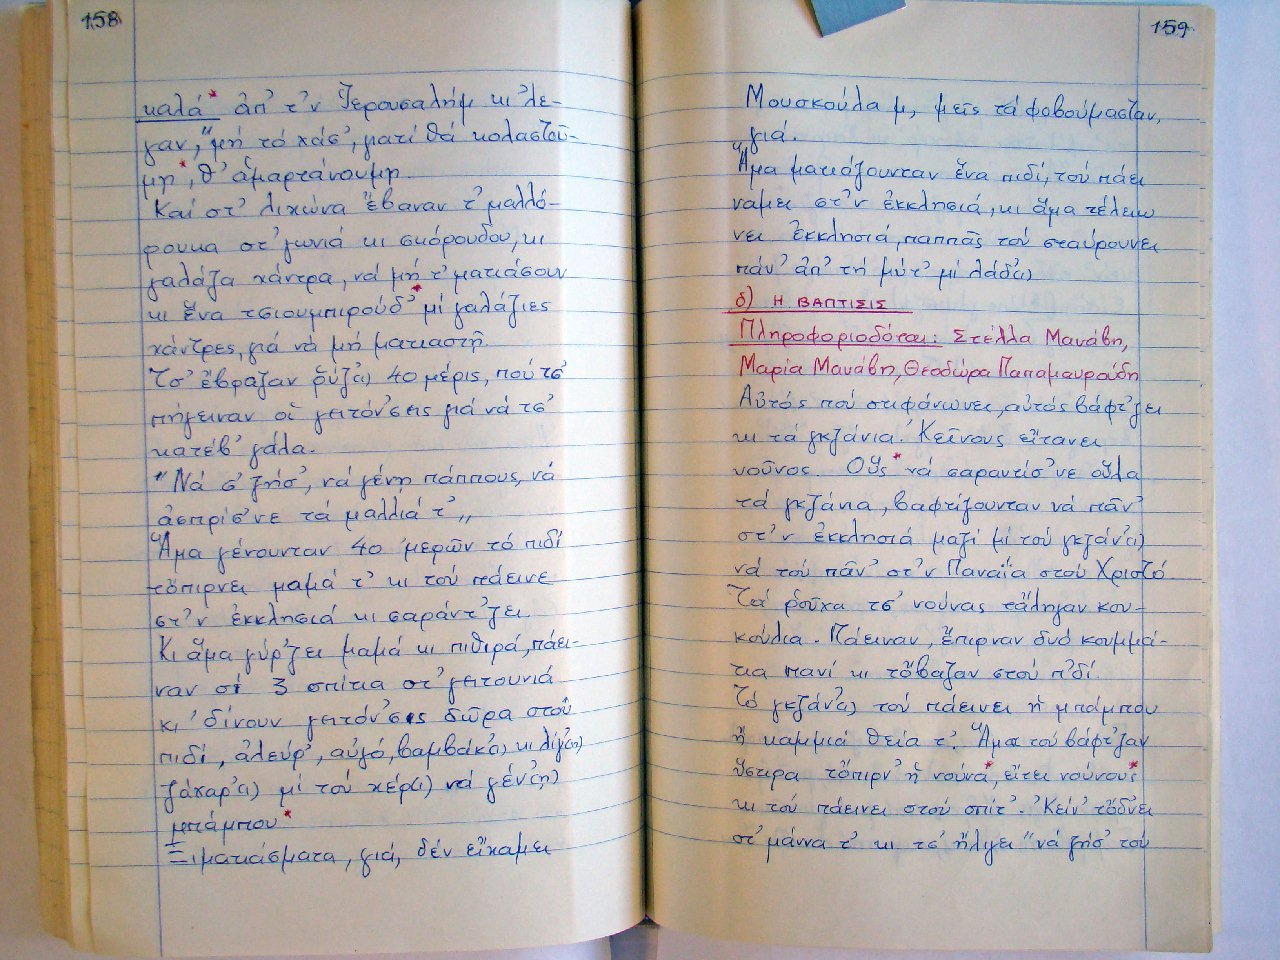 158
καλά* ἀπ' τ'ν Ἱερουσαλήμ κι 'λέ-
γαν, "μή τό χάσ', γιατί θά κολαστοῦ-
μη*, θ' ἁμαρτάνουμη.
Καί στ' λιχώνα ἔβαναν τ' μαλλό-
ρουκα στ' γωνιά κι σκόρουδου, κι
γαλάζα χάντρα, νά μή τ' ματιάσουν
κι ἕνα τσιουμπιρούδ'* μί γαλάζιες
χάντρες, γιά νά μή ματιαστῆ.
Τσ' ἔβραζαν ρύζ(ι) 40 μέρις, πού τσ'
πήγειναν οἱ γειτόν'σεις γιά νά τσ'
κατέβ' γάλα.
"Νά σ' ζήσ', νά γένη πάππους, νά
ἀσπρίσ'νε τά μαλλιά τ'"
Ἅμα γένουνταν 40 μερῶν τό πιδί
τὄπιρνει μαμά τ' κι τού πάεινε
στ'ν ἐκκλησιά κι σαράντ'ζει.
Κι ἅμα γύρ'ζει μαμά κι πιθιρά, πάει-
ναν σί 3 σπίτια στ' γειτουνιά
κι 'δίνουν γειτόν'σεις δῶρα στού
πιδί, ἀλεύρ', αὐγό, βαμβάκ(ι) κι λίγ(η)
ζάχαρ'(ι) μί τού χέρ(ι) νά γέν'(η)
μπάμπου*
Ξιματιάσματα, γιά, δέν εἴχαμει
159
Μουσκούλα μ, μεῖς τά φοβούμασταν,
γιά.
Ἅμα ματιάζουνταν ἕνα πιδί, τού πάει
ναμει στ'ν ἐκκλησιά, κι ἅμα τέλειω
νει ἐκκλησιά, παππᾶς τού σταύρουνει
πάν' ἀπ' τή μύτ' μί λάδ(ι)
δ) Η ΒΑΠΤΙΣΙΣ
Πληροφοριοδόται: Στέλλα Μανάβη,
Μαρία Μανάβη, Θεοδώρα Παπαμαυρούδη
Αὐτός πού στιφάνωνει, αὐτός βάφτ'ζει
κι τά γκζάνια. Κεῖνους εἴτανει
νοῦνος. Οὕς* νά σαραντίσ'νε οὗλα
τά γκζάνια, βαφτίζουνταν νά πᾶν'
στ'ν ἐκκλησιά μαζί μί τού γκζάν'(ι)
νά τού πᾶν' στ'ν Παναΐα στού Χριστό.
Τά ῥοῦχα τσ' νούνας τἄληγαν κου-
κούλια. Πάειναν, ἔπιρναν δυό κουμμά-
τια πανί κι τὄβαζαν στού π'δί.
Τό γκζάν'(ι) τού πάεινει ἡ μπάμπου
ἤ καμμιά θεία τ'. Ἅμα τού βάφτ'ζαν
ὕστιρα τὄπιρν' ἡ νούνα*, εἴτει νούνους*
κι τού πάεινει στού σπίτ'. Κείν' τὄδ'νει
στ' μάννα τ' κι τσ' ἤλιγει "νά ζήσ' τού